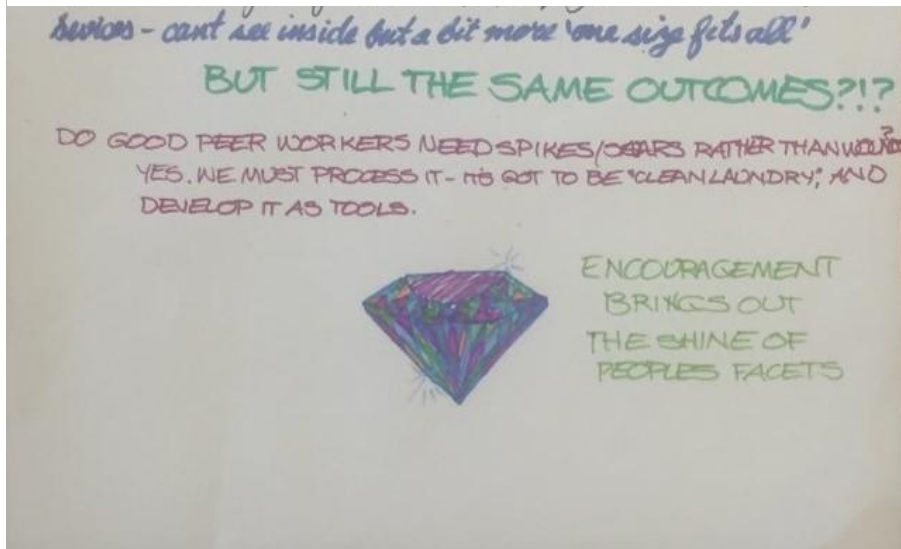 - cant see inside but a bit more 'one size fits all'
BUT STILL THE SAME OUTCOMES?!?
DO GOOD PEER WORKERS NEED SPIKES/SCARS RATHER THAN
YES. WE MUST PROCESS IT - IT'S GOT TO BE "CLEAN LAUNDRY", AND
DEVELOP IT AS TOOLS.
ENCOURAGEMENT
BRINGS OUT
THE SHINE OF
PEOPLES FACETS